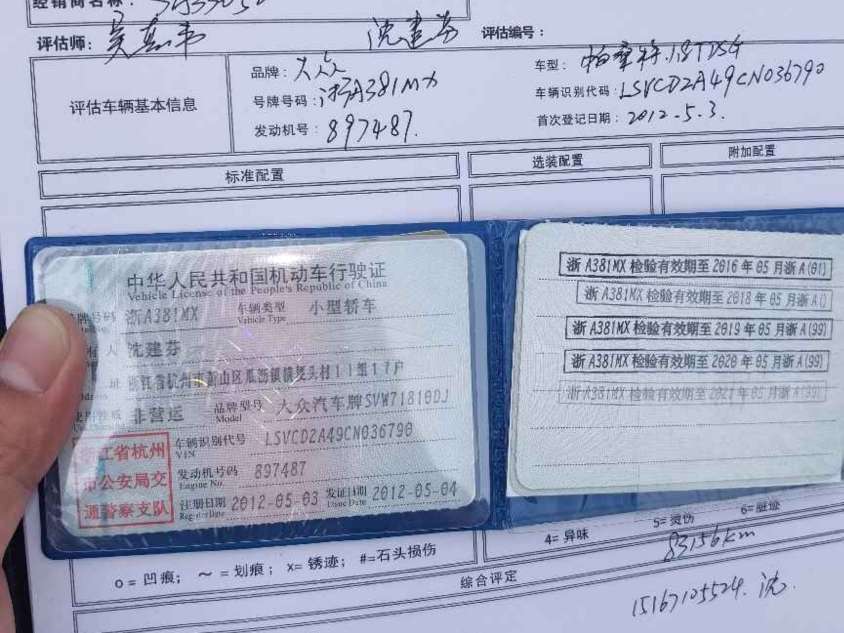 经销商名称：
评估师： 沈建芬 评估编号：
品牌：大众 车型：帕萨特1.8TDSG
评估车辆基本信息 号牌号码：浙A381MX 车辆识别代码：LSVCD2A49CN036790
发动机号：897487. 首次登记日期：2012-5.3.
标准配置 选装配置 附加配置
中华人民共和国机动车行驶证
Vehicle License of the People's Republic of China
号牌号码 浙A381MX 车辆类型 小型轿车
Vehicle Type
人 沈建芬
址 浙江省杭州市萧山区瓜沥镇 头村11组17户
非营运 品牌型号 大众汽车牌SVW71810DJ
Model
浙江省杭州
市公安局交
通警察支队
车辆识别代号 LSVCD2A49CN036790
VIN
发动机号码 897487
Engine No.
注册日期 2012-05-03 发证日期 2012-05-04
Register Date Issue Date
浙A381MX 检验有效期至2016年05月浙A(01)
浙A381MX 检验有效期至2018年05月浙A()
浙A381MX 检验有效期至2019年05月浙A(99)
浙A381MX 检验有效期至2020年05月浙A(99)
浙A381MX 检验有效期至2021年05月浙A(99)
4= 异味 5= 烫伤 6=
83156km
o = 凹痕； ～ = 划痕； x= 锈迹； #=石头损伤
综合评定
15167105524. 沈.